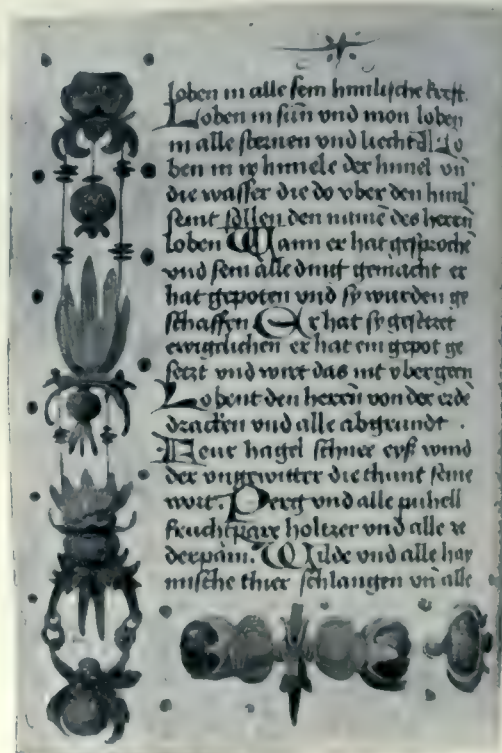 loben in alle sein himlische kreft.
Loben in sun̄ vnd mon loben
in alle sternen vnd liecht Lo
ben in ir himele der himel vn̄
die wasser die do vber den himl
seint sollen den namē des herrn
loben Wann er hat gesprochē
vnd sein alle dinck gemacht er
hat gepoten vnd sy wurden ge
schaffen Er hat sy gesetzet
ewigclichen er hat ein gepot ge
setzt vnd wirt das nit vbergeen
Lobent den herrn von der erde
dracken vnd alle abgrundt .
Feur hagel schnee eyß wind
der vngewitter die thunt seine
wort. Perg vnd alle puhell
fruchtpare holtzer vnd alle ze
derpām. Wilde vnd alle hay
mische thier schlangen vn̄ alle